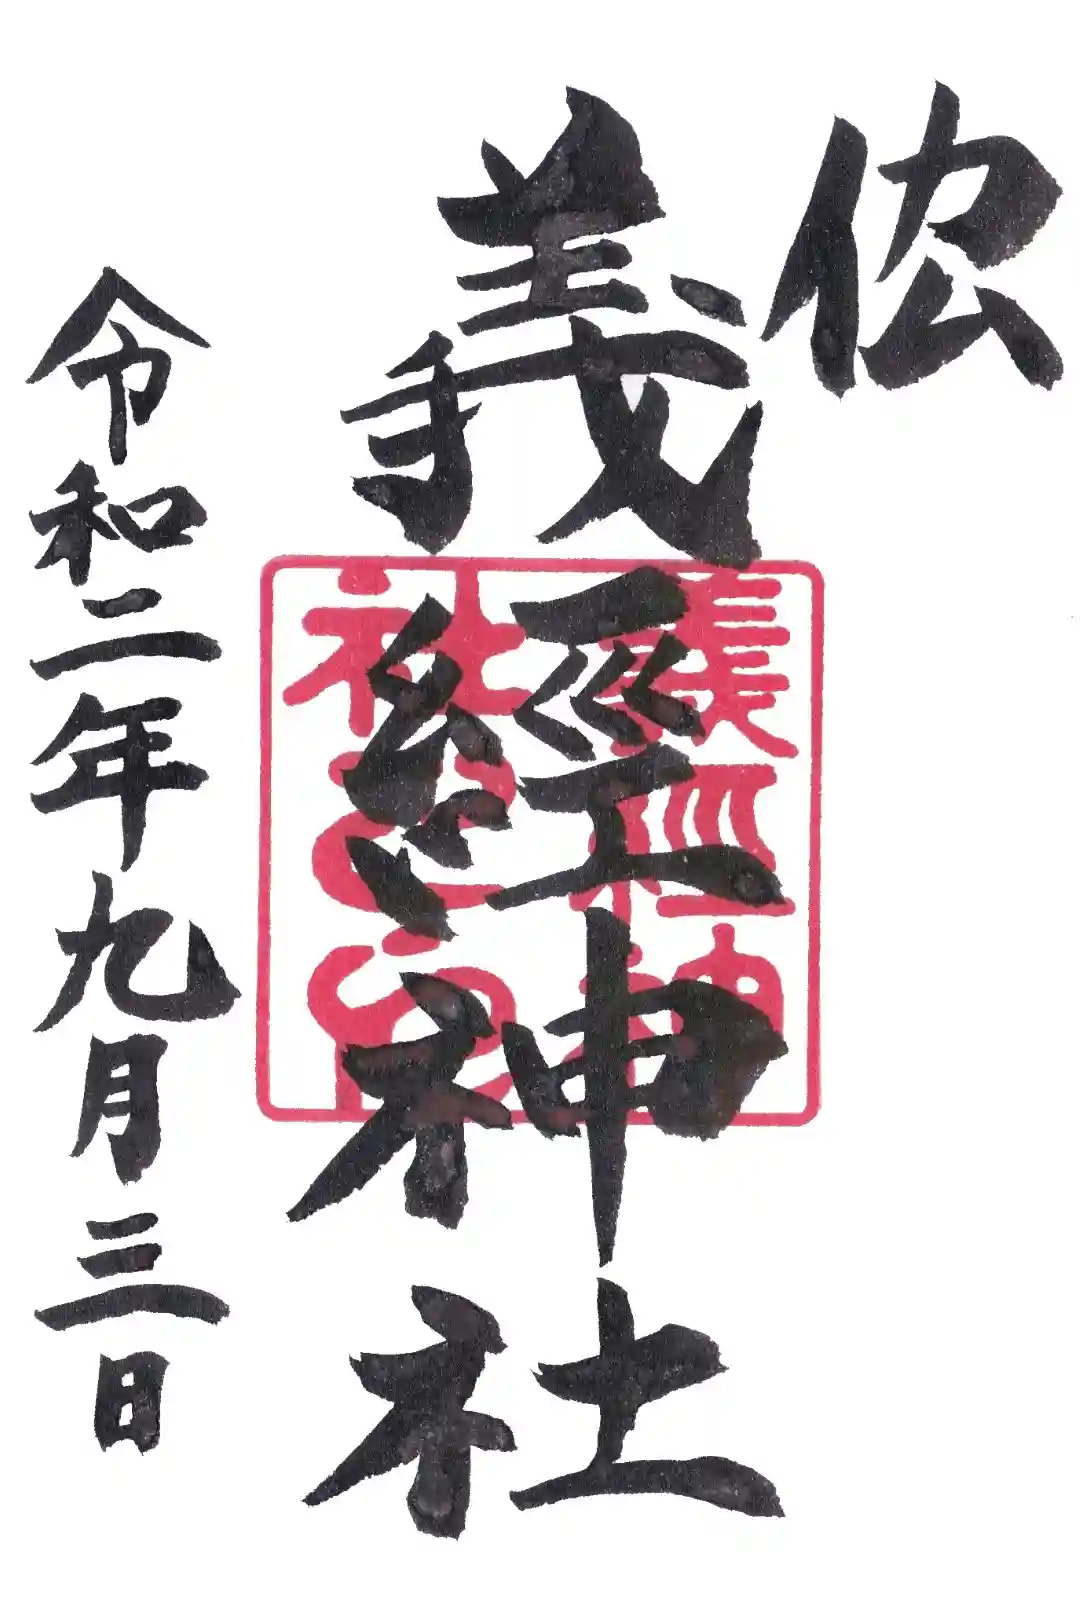 義經神社
義經神
社之印
令和二年九月三日